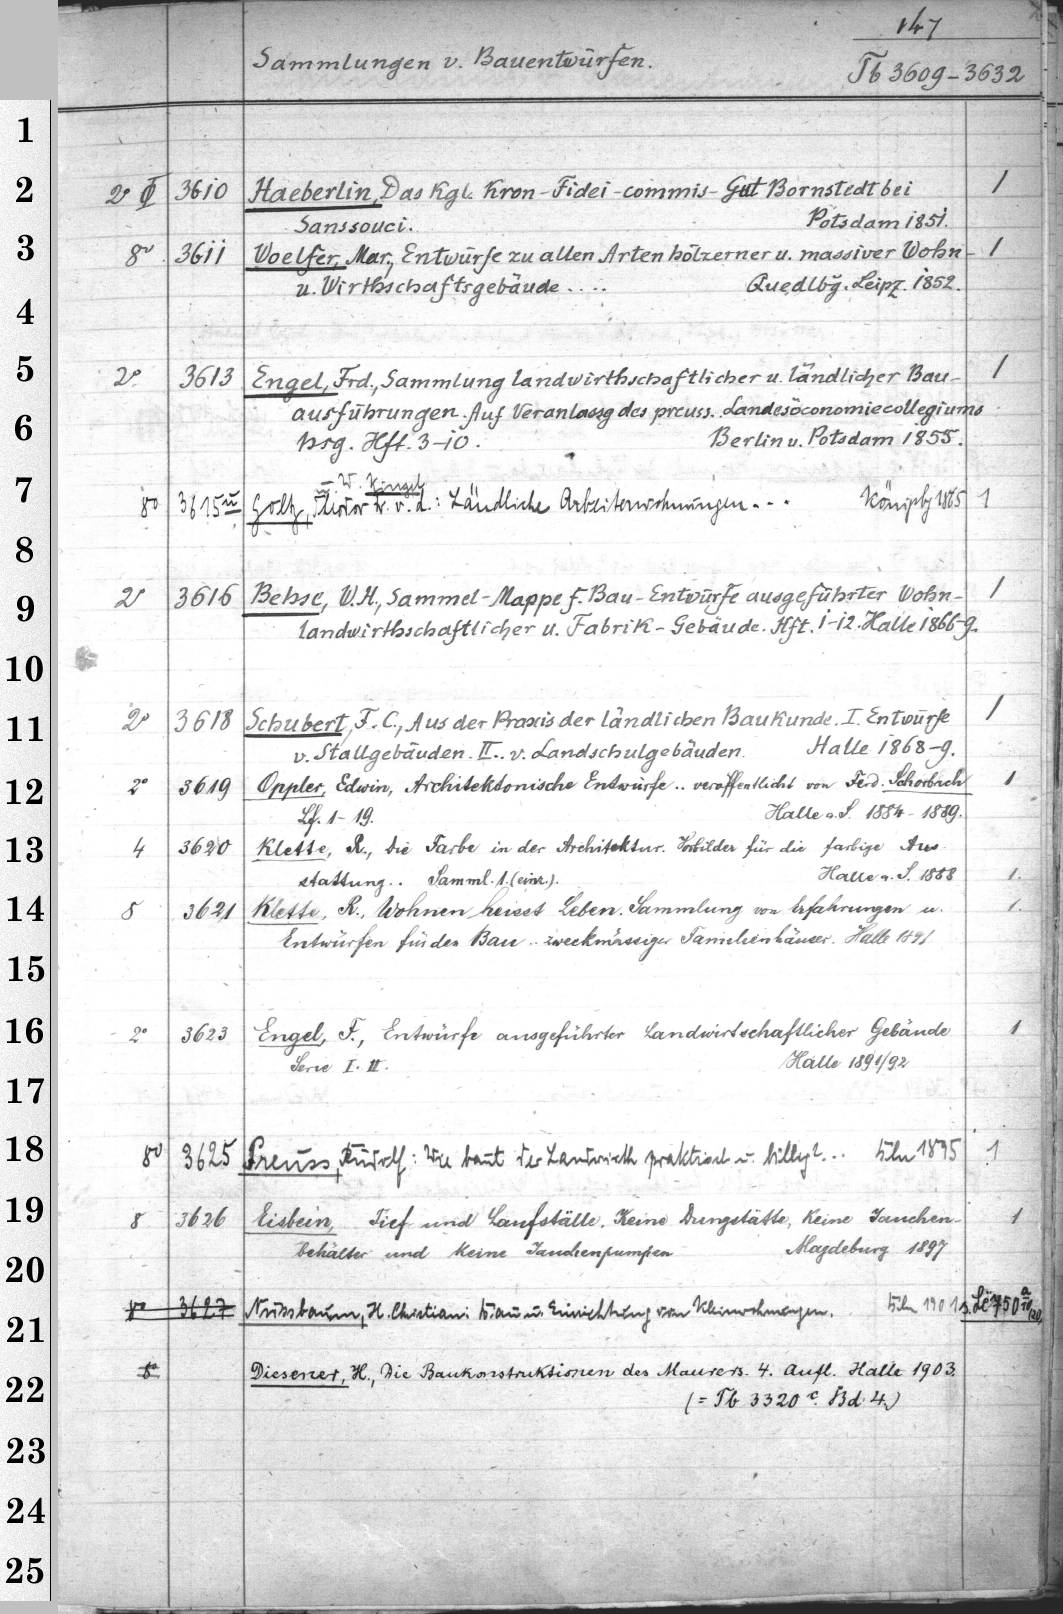 147
Sammlungen v. Bauentwürfen.
Tb 3609-3632
1
2
2° 3610 Haeberlin, Das Kgl. Kron-Fidei-commis-Gut Bornstedt bei 1
Sanssouci. Potsdam 1851.
3
8° 3611 Woelfer, Mar., Entwürfe zu allen Arten hölzerner u. massiver Wohn- 1
u. Wirthschaftsgebäude .... Quedlbg. Leipz. 1852.
4
5
2° 3613 Engel, Frd., Sammlung landwirthschaftlicher u. ländlicher Bau- 1
ausführungen. Auf Veranlassg des preuss. Landesöconomiecollegiums
6
hsg. Hft. 3-10. Berlin u. Potsdam 1855.
7
8° 3615 Goltz, Theodor Fr. v. d.: Ländliche Arbeiterwohnungen... Königsbg 1865 1
8
9
2° 3616 Behse, W.H., Sammel-Mappe f. Bau-Entwürfe ausgeführter Wohn- 1
landwirthschaftlicher u. Fabrik-Gebäude. Hft. 1-12. Halle 1866-9.
10
11
2° 3618 Schubert, F.C., Aus der Praxis der ländlichen Baukunde. I. Entwürfe 1
v. Stallgebäuden. II.. v. Landschulgebäuden. Halle 1868-9.
12
2° 3619 Oppler, Edwin, Architektonische Entwürfe .. veröffentlicht von Ferd. Schorbach 1
Lf. 1-19. Halle a. S. 1884-1889.
13
4 3620 Klette, R., Die Farbe in der Architektur. Vorbilder für die farbige Aus-
stattung.. Samml. 1. (einz.). Halle a. S. 1888 1.
14
8 3621 Klette, R., Wohnen heisst Leben. Sammlung von Erfahrungen u. 1.
Entwürfen für den Bau .. zweckmässiger Familienhäuser. Halle 1891
15
16
2° 3623 Engel, F., Entwürfe ausgeführter Landwirtschaftlicher Gebäude 1
Serie I. II. Halle 1891/92
17
18
8° 3625 Preuss, Rudolf: Wie baut der Landwirth praktisch u. billig?... Bln 1895 1
19
8 3626 Eisbein, Tief und Laufställe. Keine Dungstätte, Keine Jauchen- 1
behälter und keine Jauchenpumpen Magdeburg 1897
20
21
8° 3627 Nussbaum, H. Christian: Bau u. Einrichtung von Kleinwohnungen. Bln 1901
22
8° Diesener, H., Die Baukonstruktionen des Maurers. 4. Aufl. Halle 1903.
(= Tb 3320 c. Bd. 4.)
23
24
25